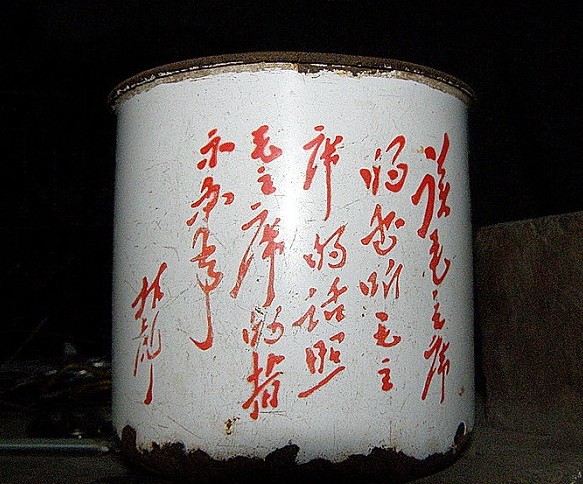 读毛主席
的书听毛主
席的话照
毛主席的指
示办事
林彪